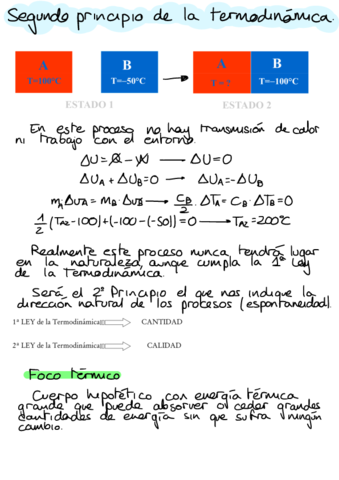 Segundo principio de la termodinámica.
A B A B
T=100°C T=-50°C T = ? T=-100°C
ESTADO 1 ESTADO 2
En este proceso no hay transmisión de calor
ni trabajo con el entorno.
ΔU = Q - W → ΔU = 0
ΔU_A + ΔU_B = 0 → ΔU_A = -ΔU_B
m_A Δu_A = m_B · Δu_B → C_B/2 · ΔT_A = C_B · ΔT_B = 0
1/2 (T_A2 - 100) + (-100 - (-50)) = 0 → T_A2 = 200°C
Realmente este proceso nunca tendrá lugar
en la naturaleza, aunque cumpla la 1ª Ley
de la Termodinámica.
Será el 2º Principio el que nos indique la
dirección natural de los procesos (espontaneidad).
1ª LEY de la Termodinámica CANTIDAD
2ª LEY de la Termodinámica CALIDAD
Foco térmico
Cuerpo hipotético con energía térmica
grande que puede absorver o ceder grandes
cantidades de energía sin que sufra ningún
cambio.